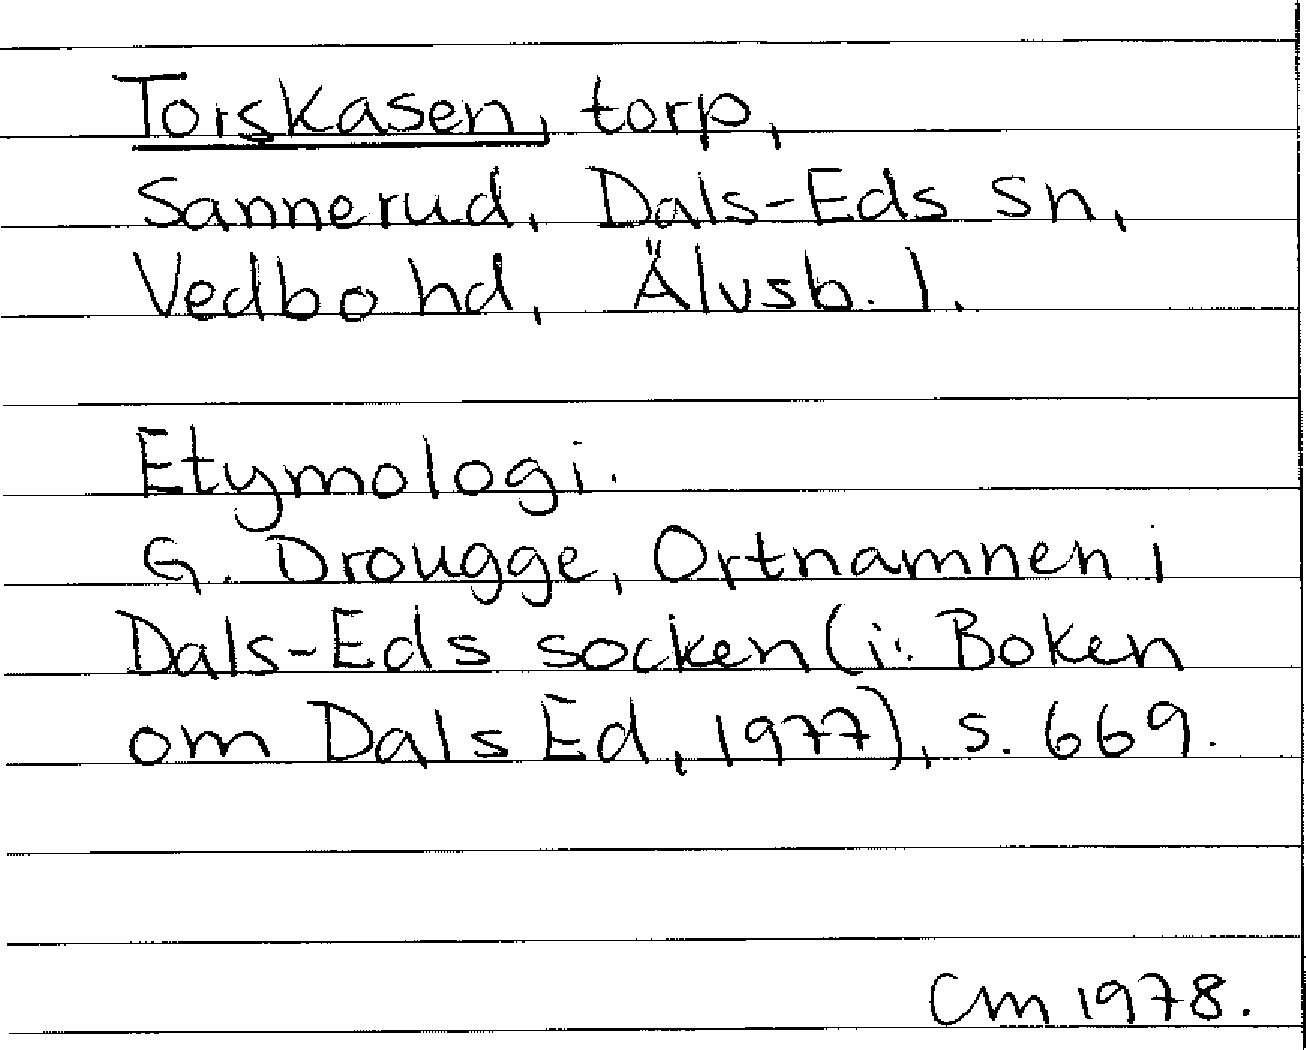 Torskasen, torp,
Sannerud, Dals-Eds sn,
Vedbo hd, Älvsb. l.
Etymologi.
G. Drougge, Ortnamnen i
Dals-Eds socken (i: Boken
om Dals Ed, 1977), s. 669.
CM 1978.